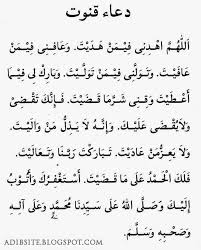 دعاء قنوت
اَللّٰهُمَّ اهْدِنِى فِيْمَنْ هَدَيْتَ. وَعَافِنِى فِيْمَنْ
عَافَيْتَ. وَتَوَلَّنِى فِيْمَنْ تَوَلَّيْتَ. وَبَارِكْ لِى فِيْمَا
أَعْطَيْتَ. وَقِنِى شَرَّمَا قَضَيْتَ. فَإِنَّكَ تَقْضِىْ
وَلَايُقْضٰى عَلَيْكَ. وَإِنَّهُ لَايَذِلُّ مَنْ وَالَيْتَ.
وَلَا يَعِزُّمَنْ عَادَيْتَ. تَبَارَكْتَ رَبَّنَا وَتَعَالَيْتَ.
فَلَكَ الْحَمْدُ عَلَى مَا قَضَيْتَ. أَسْتَغْفِرُكَ وَأَتُوْبُ
إِلَيْكَ وَصَلَّى اللهُ عَلَى سَيِّدِنَا مُحَمَّدٍ وَعَلَى آلِهِ
وَصَحْبِهِ وَسَلَّمَ.
ADIBSITE.BLOGSPOT.COM